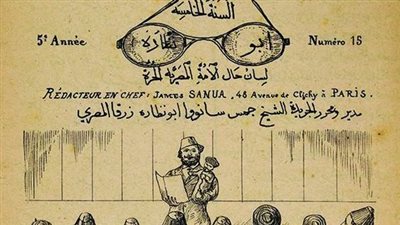 السنة الخامسة
5e Année
ابو نظاره
Numéro 15
لسان حال الامة المصرية الحرة
RÉDACTEUR EN CHEF: JAMES SANUA, 48 Avenue de Clichy à PARIS.
مدير ومحرر الجريدة الشيخ جمس سانووا ابو نظاره زرقا المصري